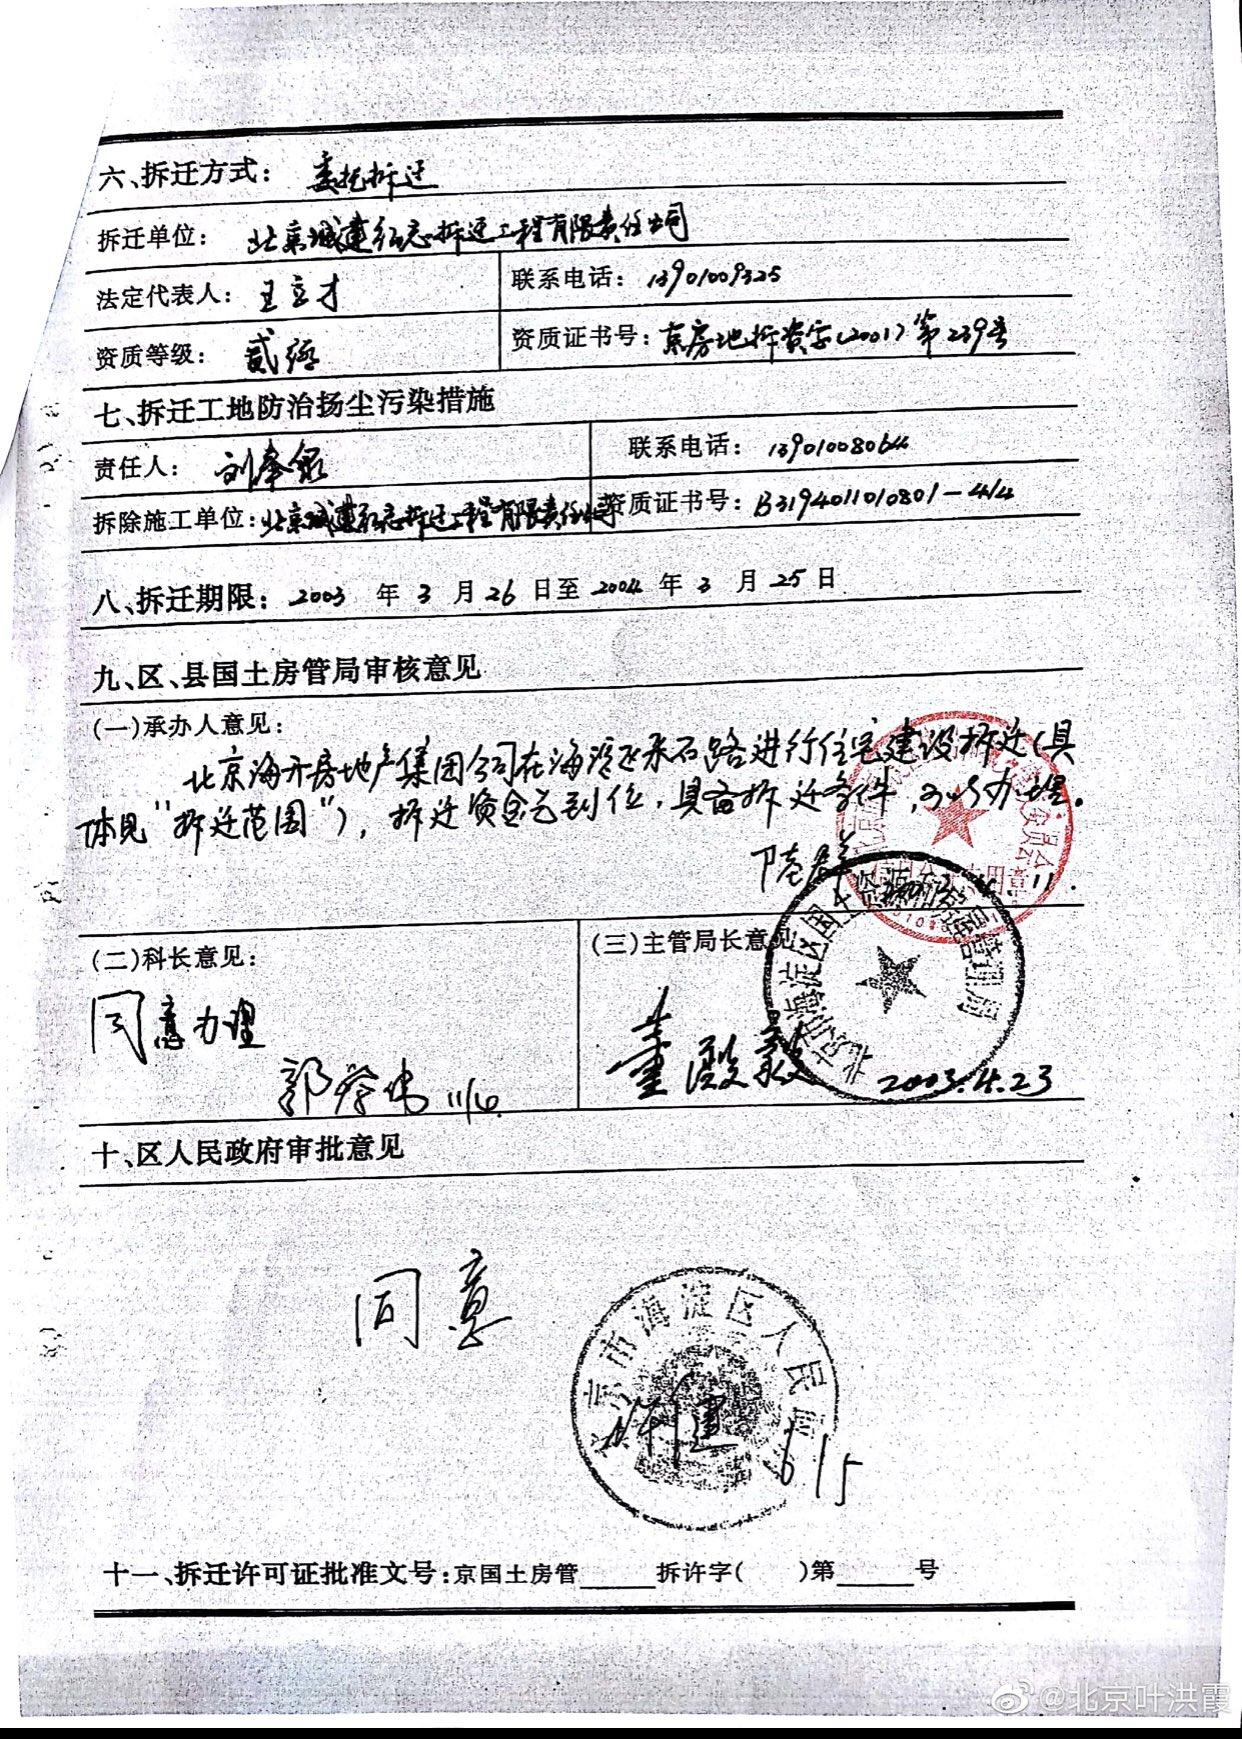 六、拆迁方式: 委托拆迁
拆迁单位: 北京城建 拆迁工程有限责任公司
法定代表人: 王立才 联系电话: 13901009325
资质等级: 贰级 资质证书号: 京房地拆资字(2001)第239号
七、拆迁工地防治扬尘污染措施
责任人: 联系电话: 13901008064
拆除施工单位: 北京城建 拆迁工程有限责任公司 资质证书号: B3194011010801-4/4
八、拆迁期限: 2003 年 3 月 26 日至 2004 年 3 月 25 日
九、区、县国土房管局审核意见
(一)承办人意见:
北京海开房地产集团公司在海淀区采石路进行住宅建设拆迁(具
体见“拆迁范围”), 拆迁资金已到位, 具备拆迁条件, 可以办理。
陆群 11.
(二)科长意见: (三)主管局长意见
同意办理
董殿毅 2003.4.23
郭 11/4.
北京市海淀区国土资源和房屋管理局
十、区人民政府审批意见
同意
京市海淀区人民
6/5
十一、拆迁许可证批准文号: 京国土房管 拆许字( )第 号
@北京叶洪霞